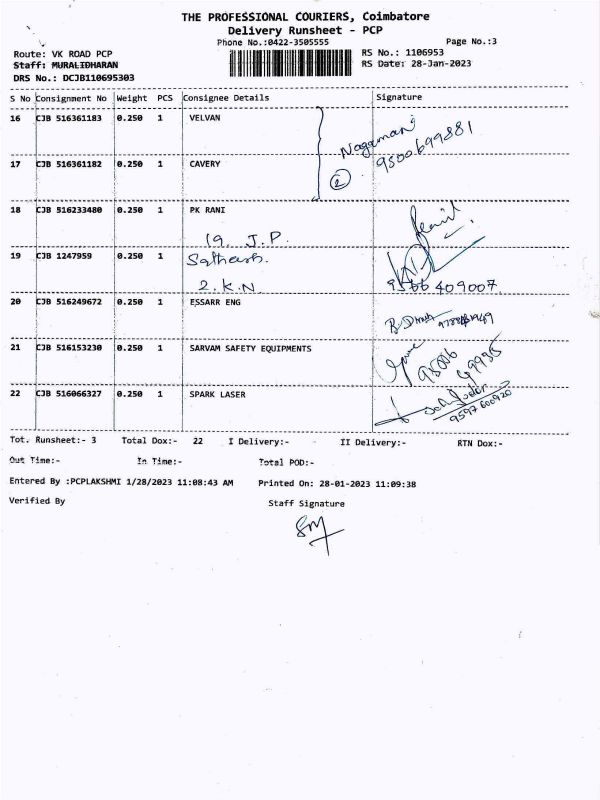 THE PROFESSIONAL COURIERS, Coimbatore
Delivery Runsheet - PCP
Phone No.:0422-3505555 Page No.:3
Route: VK ROAD PCP RS No.: 1106953
Staff: MURALIDHARAN RS Date: 28-Jan-2023
DRS No.: DCJB110695303
S No Consignment No Weight PCS Consignee Details Signature
16 CJB 516361183 0.250 1 VELVAN
Nagamani
9500699881
17 CJB 516361182 0.250 1 CAVERY
2
18 CJB 516233480 0.250 1 PK RANI
19. J.P.
19 CJB 1247959 0.250 1 Sathash.
2.K.N 9566409007
20 CJB 516249672 0.250 1 ESSARR ENG
21 CJB 516153230 0.250 1 SARVAM SAFETY EQUIPMENTS
22 CJB 516066327 0.250 1 SPARK LASER
9597600920
Tot. Runsheet:- 3 Total Dox:- 22 I Delivery:- II Delivery:- RTN Dox:-
Out Time:- In Time:- Total POD:-
Entered By :PCPLAKSHMI 1/28/2023 11:08:43 AM Printed On: 28-01-2023 11:09:38
Verified By Staff Signature